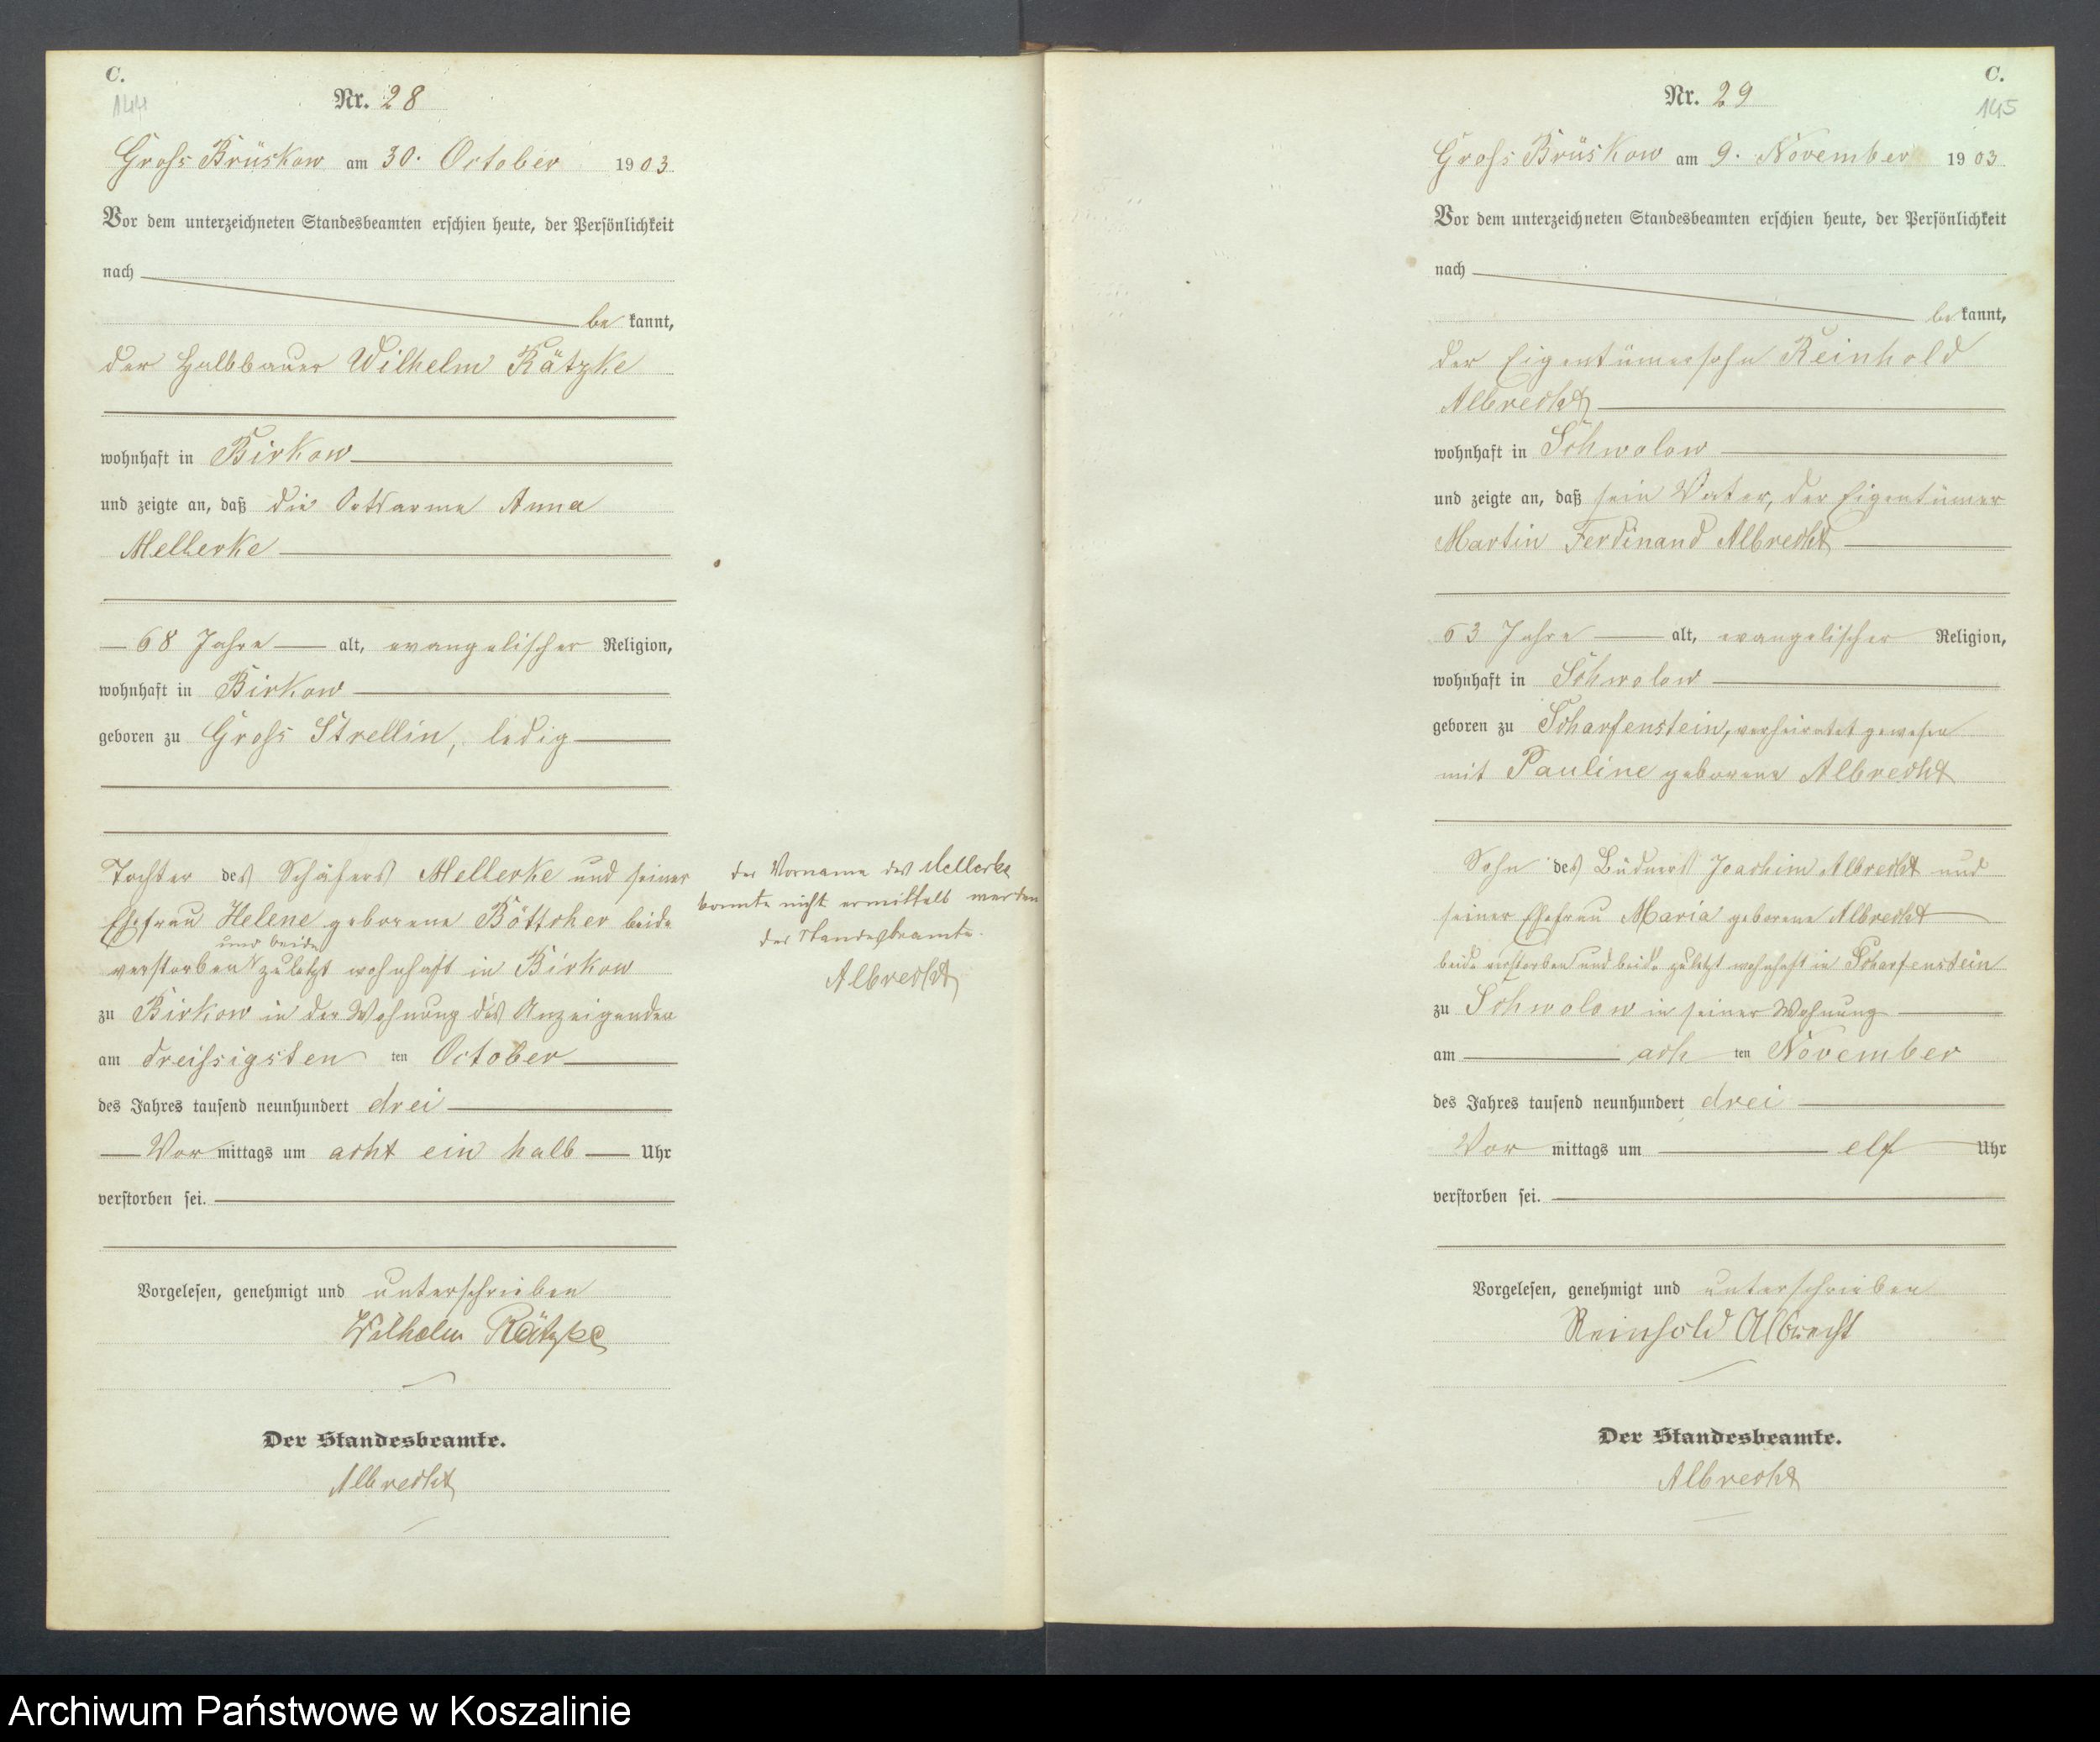 C.
144
Nr. 28
Groß Brüskow am 30. October 1903
Vor dem unterzeichneten Standesbeamten erschien heute, der Persönlichkeit
nach
be kannt,
der Halbbauer Wilhelm Rätzke
wohnhaft in Birkow
und zeigte an, daß die Ortsarme Anna
Mellerke
68 Jahre alt, evangelischer Religion,
wohnhaft in Birkow
geboren zu Groß Strellin, ledig
Tochter des Schäfers Mellerke und seiner
Ehefrau Helene geborene Böttcher beide
und beide
verstorben zuletzt wohnhaft in Birkow
zu Birkow in der Wohnung des Anzeigenden
am dreißigsten ten October
des Jahres tausend neunhundert drei
Vor mittags um acht ein halb Uhr
verstorben sei.
Vorgelesen, genehmigt und unterschrieben
Wilhelm Rätzke
Der Standesbeamte.
Albrecht
der Vorname des Mellerke
konnte nicht ermittelt werden
der Standesbeamte.
Albrecht
C.
145
Nr. 29
Groß Brüskow am 9. November 1903
Vor dem unterzeichneten Standesbeamten erschien heute, der Persönlichkeit
nach
be kannt,
der Eigentümersohn Reinhold
Albrecht
wohnhaft in Schwolow
und zeigte an, daß sein Vater, der Eigentümer
Martin Ferdinand Albrecht
63 Jahre alt, evangelischer Religion,
wohnhaft in Schwolow
geboren zu Scharfenstein, verheiratet gewesen
mit Pauline geborene Albrecht
Sohn des Büdners Joachim Albrecht und
seiner Ehefrau Maria geborene Albrecht
beide verstorben und beide zuletzt wohnhaft in Scharfenstein
zu Schwolow in seiner Wohnung
am ach ten November
des Jahres tausend neunhundert drei
Vor mittags um elf Uhr
verstorben sei.
Vorgelesen, genehmigt und unterschrieben
Reinhold Albrecht
Der Standesbeamte.
Albrecht
Archiwum Państwowe w Koszalinie